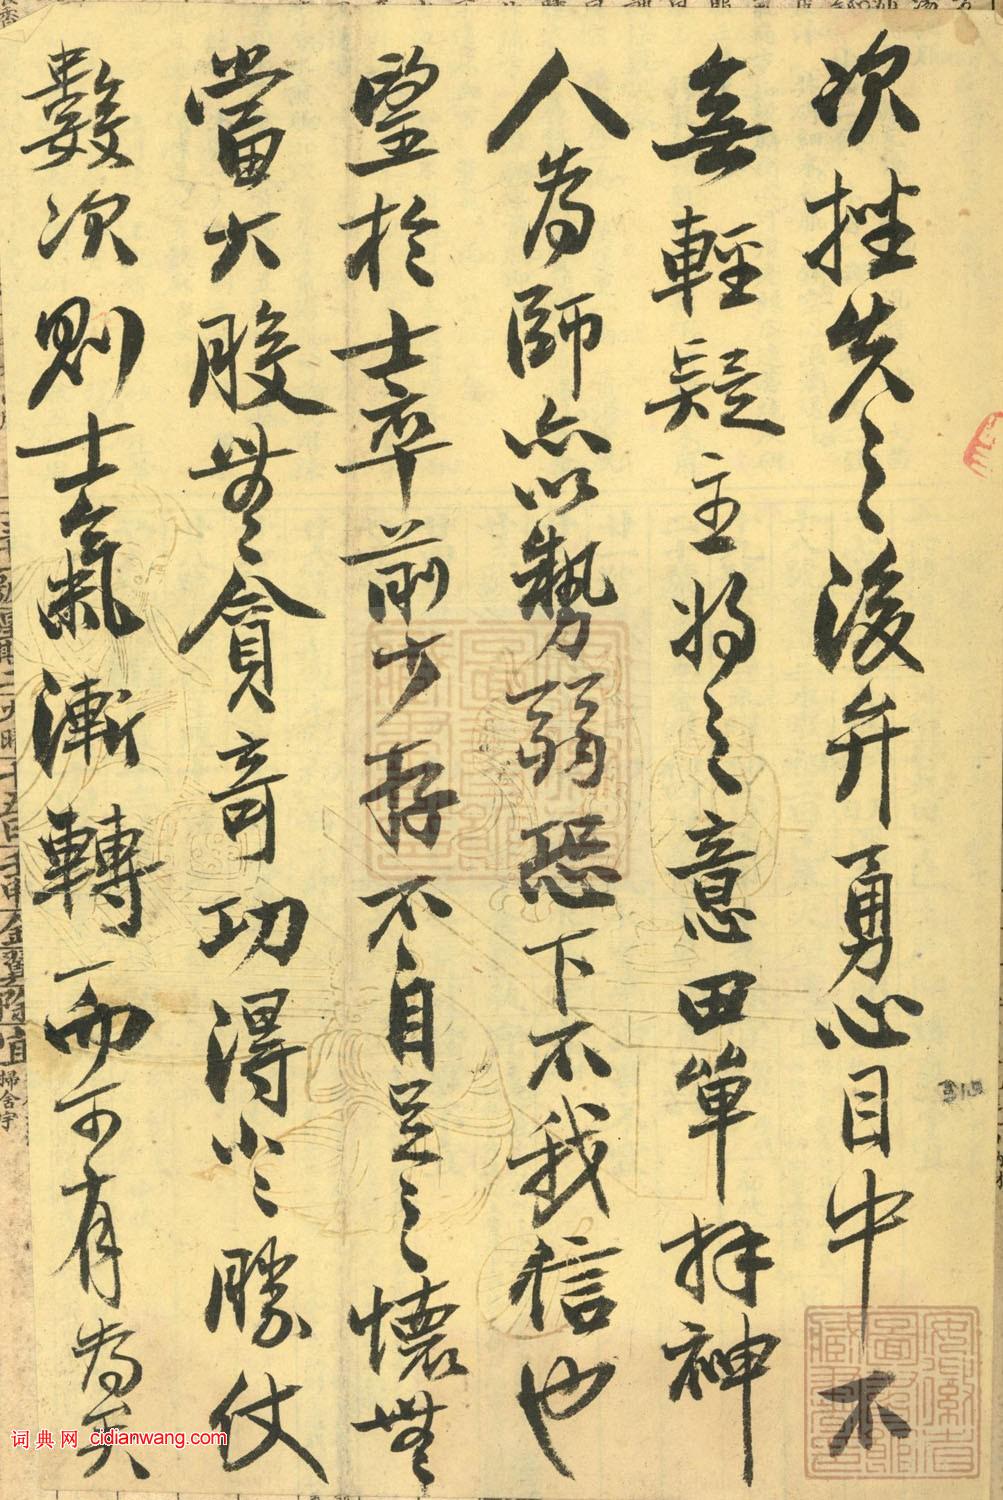 次挫失之後弁勇心目中不
無輕疑主將之意田單拜神
人為師亦以勢弱恐下不我信也
望於士卒前少存不自足之懷無
當大股無貪奇功得小小勝仗
數次則士氣漸轉而可有為矣
掃舍宇
词典网 cidianwang.com